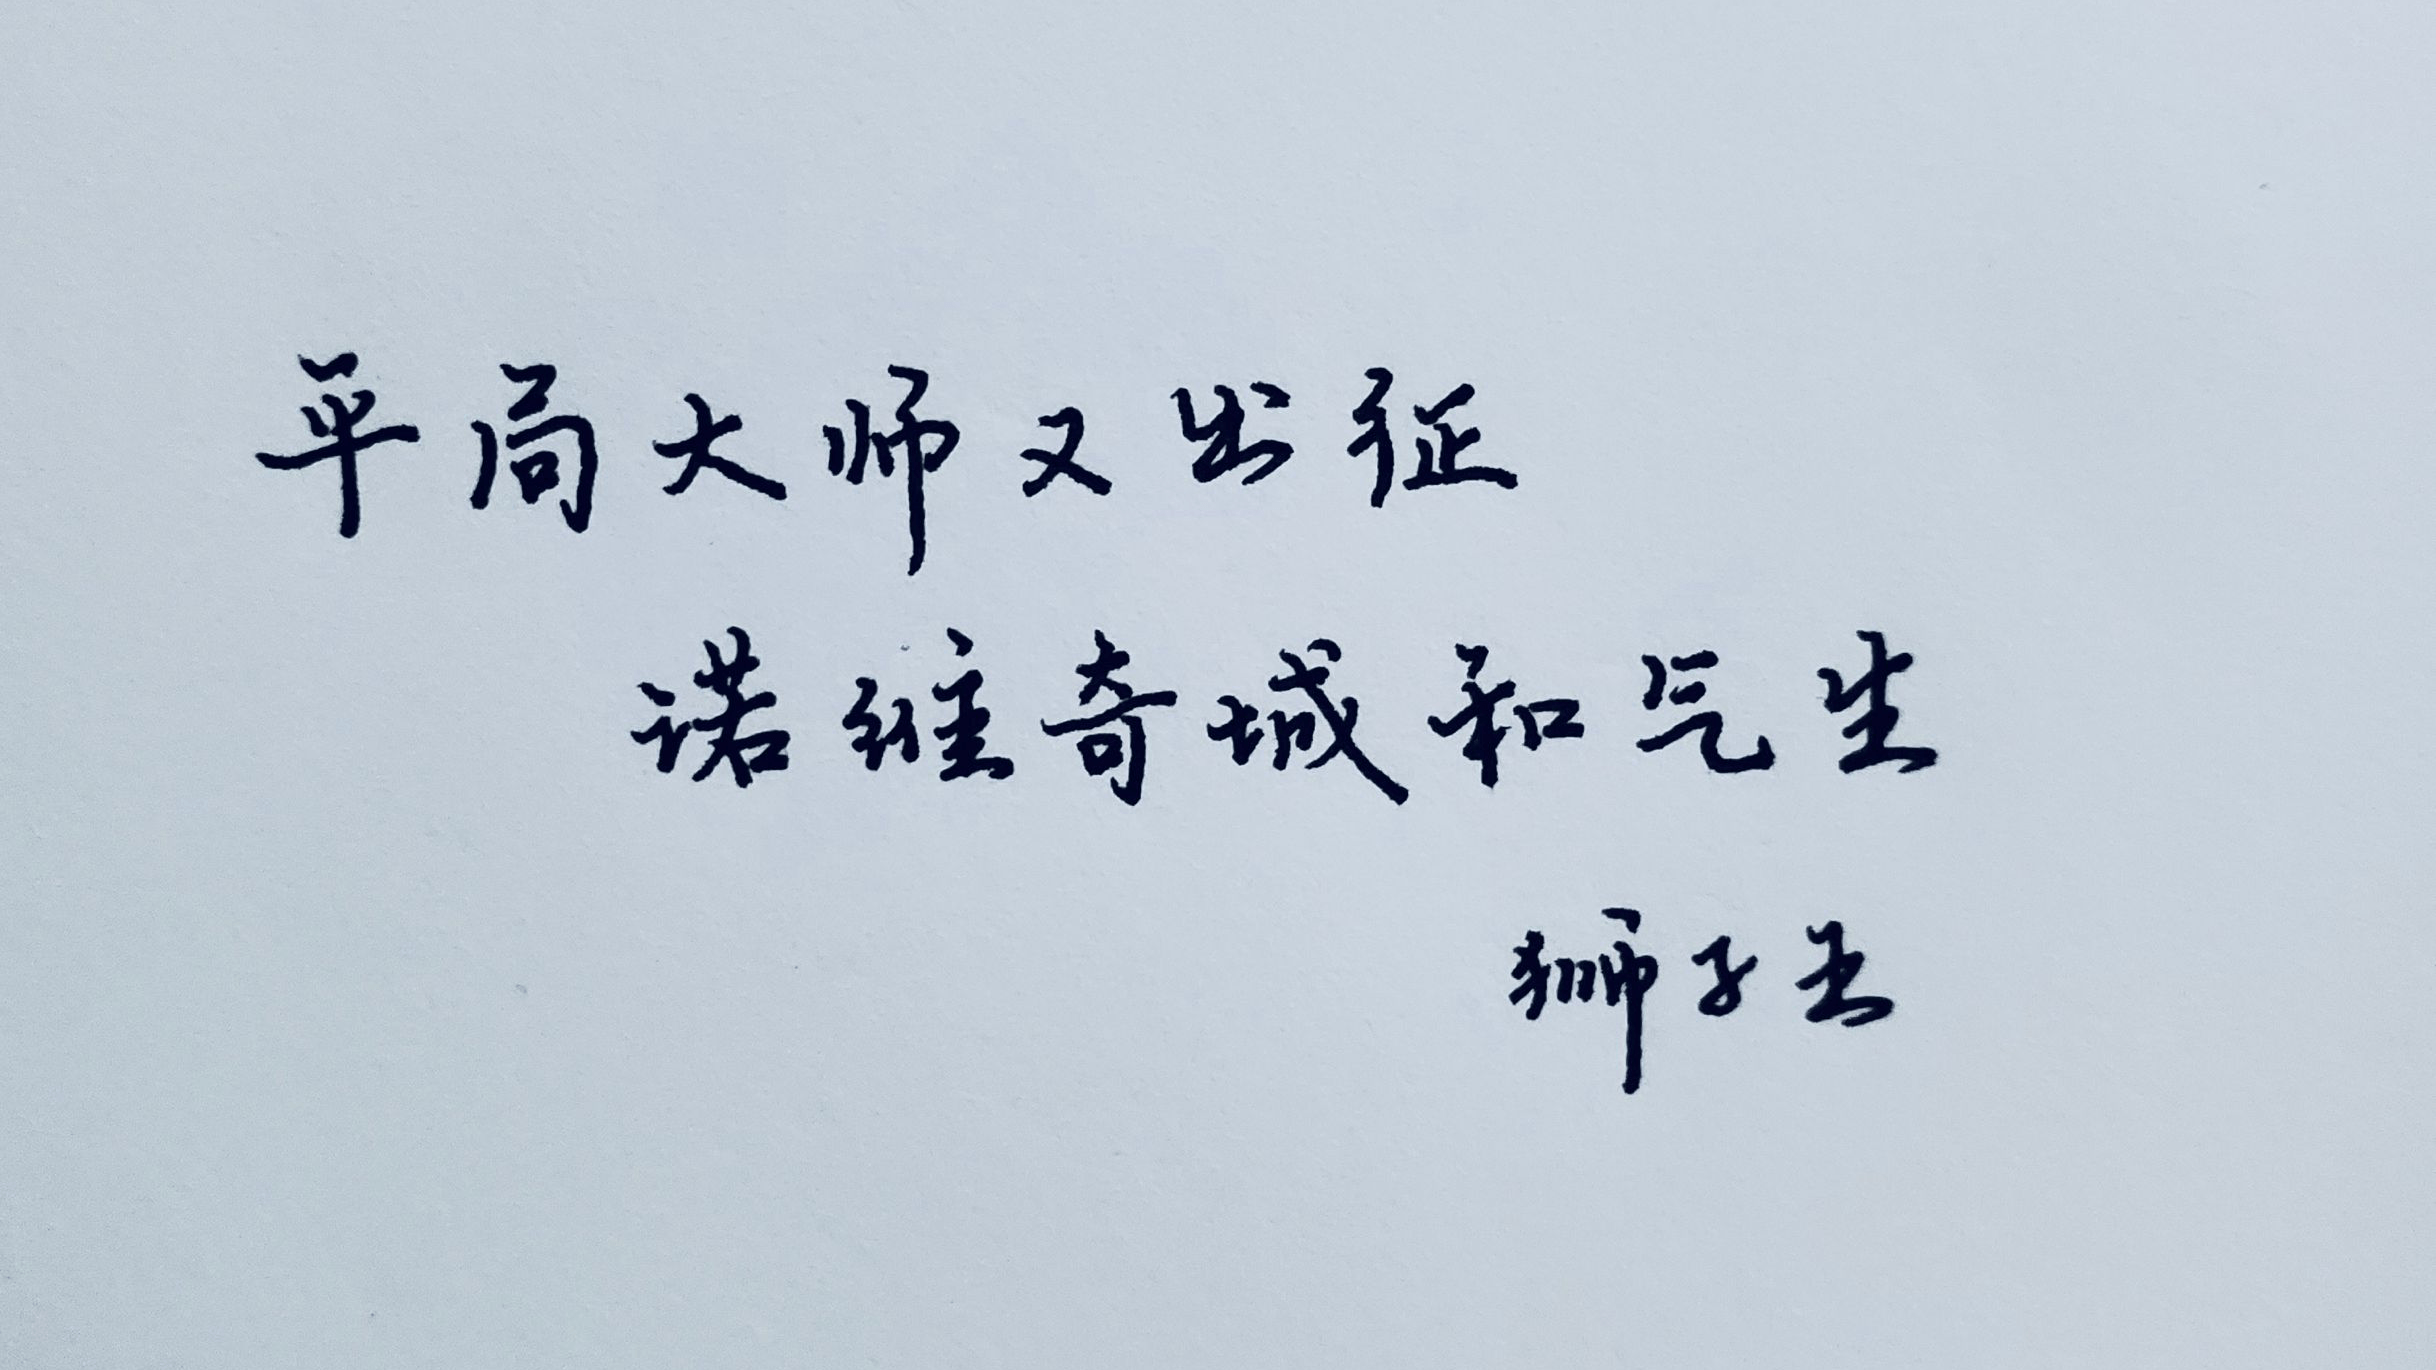 平局大师又出征
诺维奇城和气生
狮子王